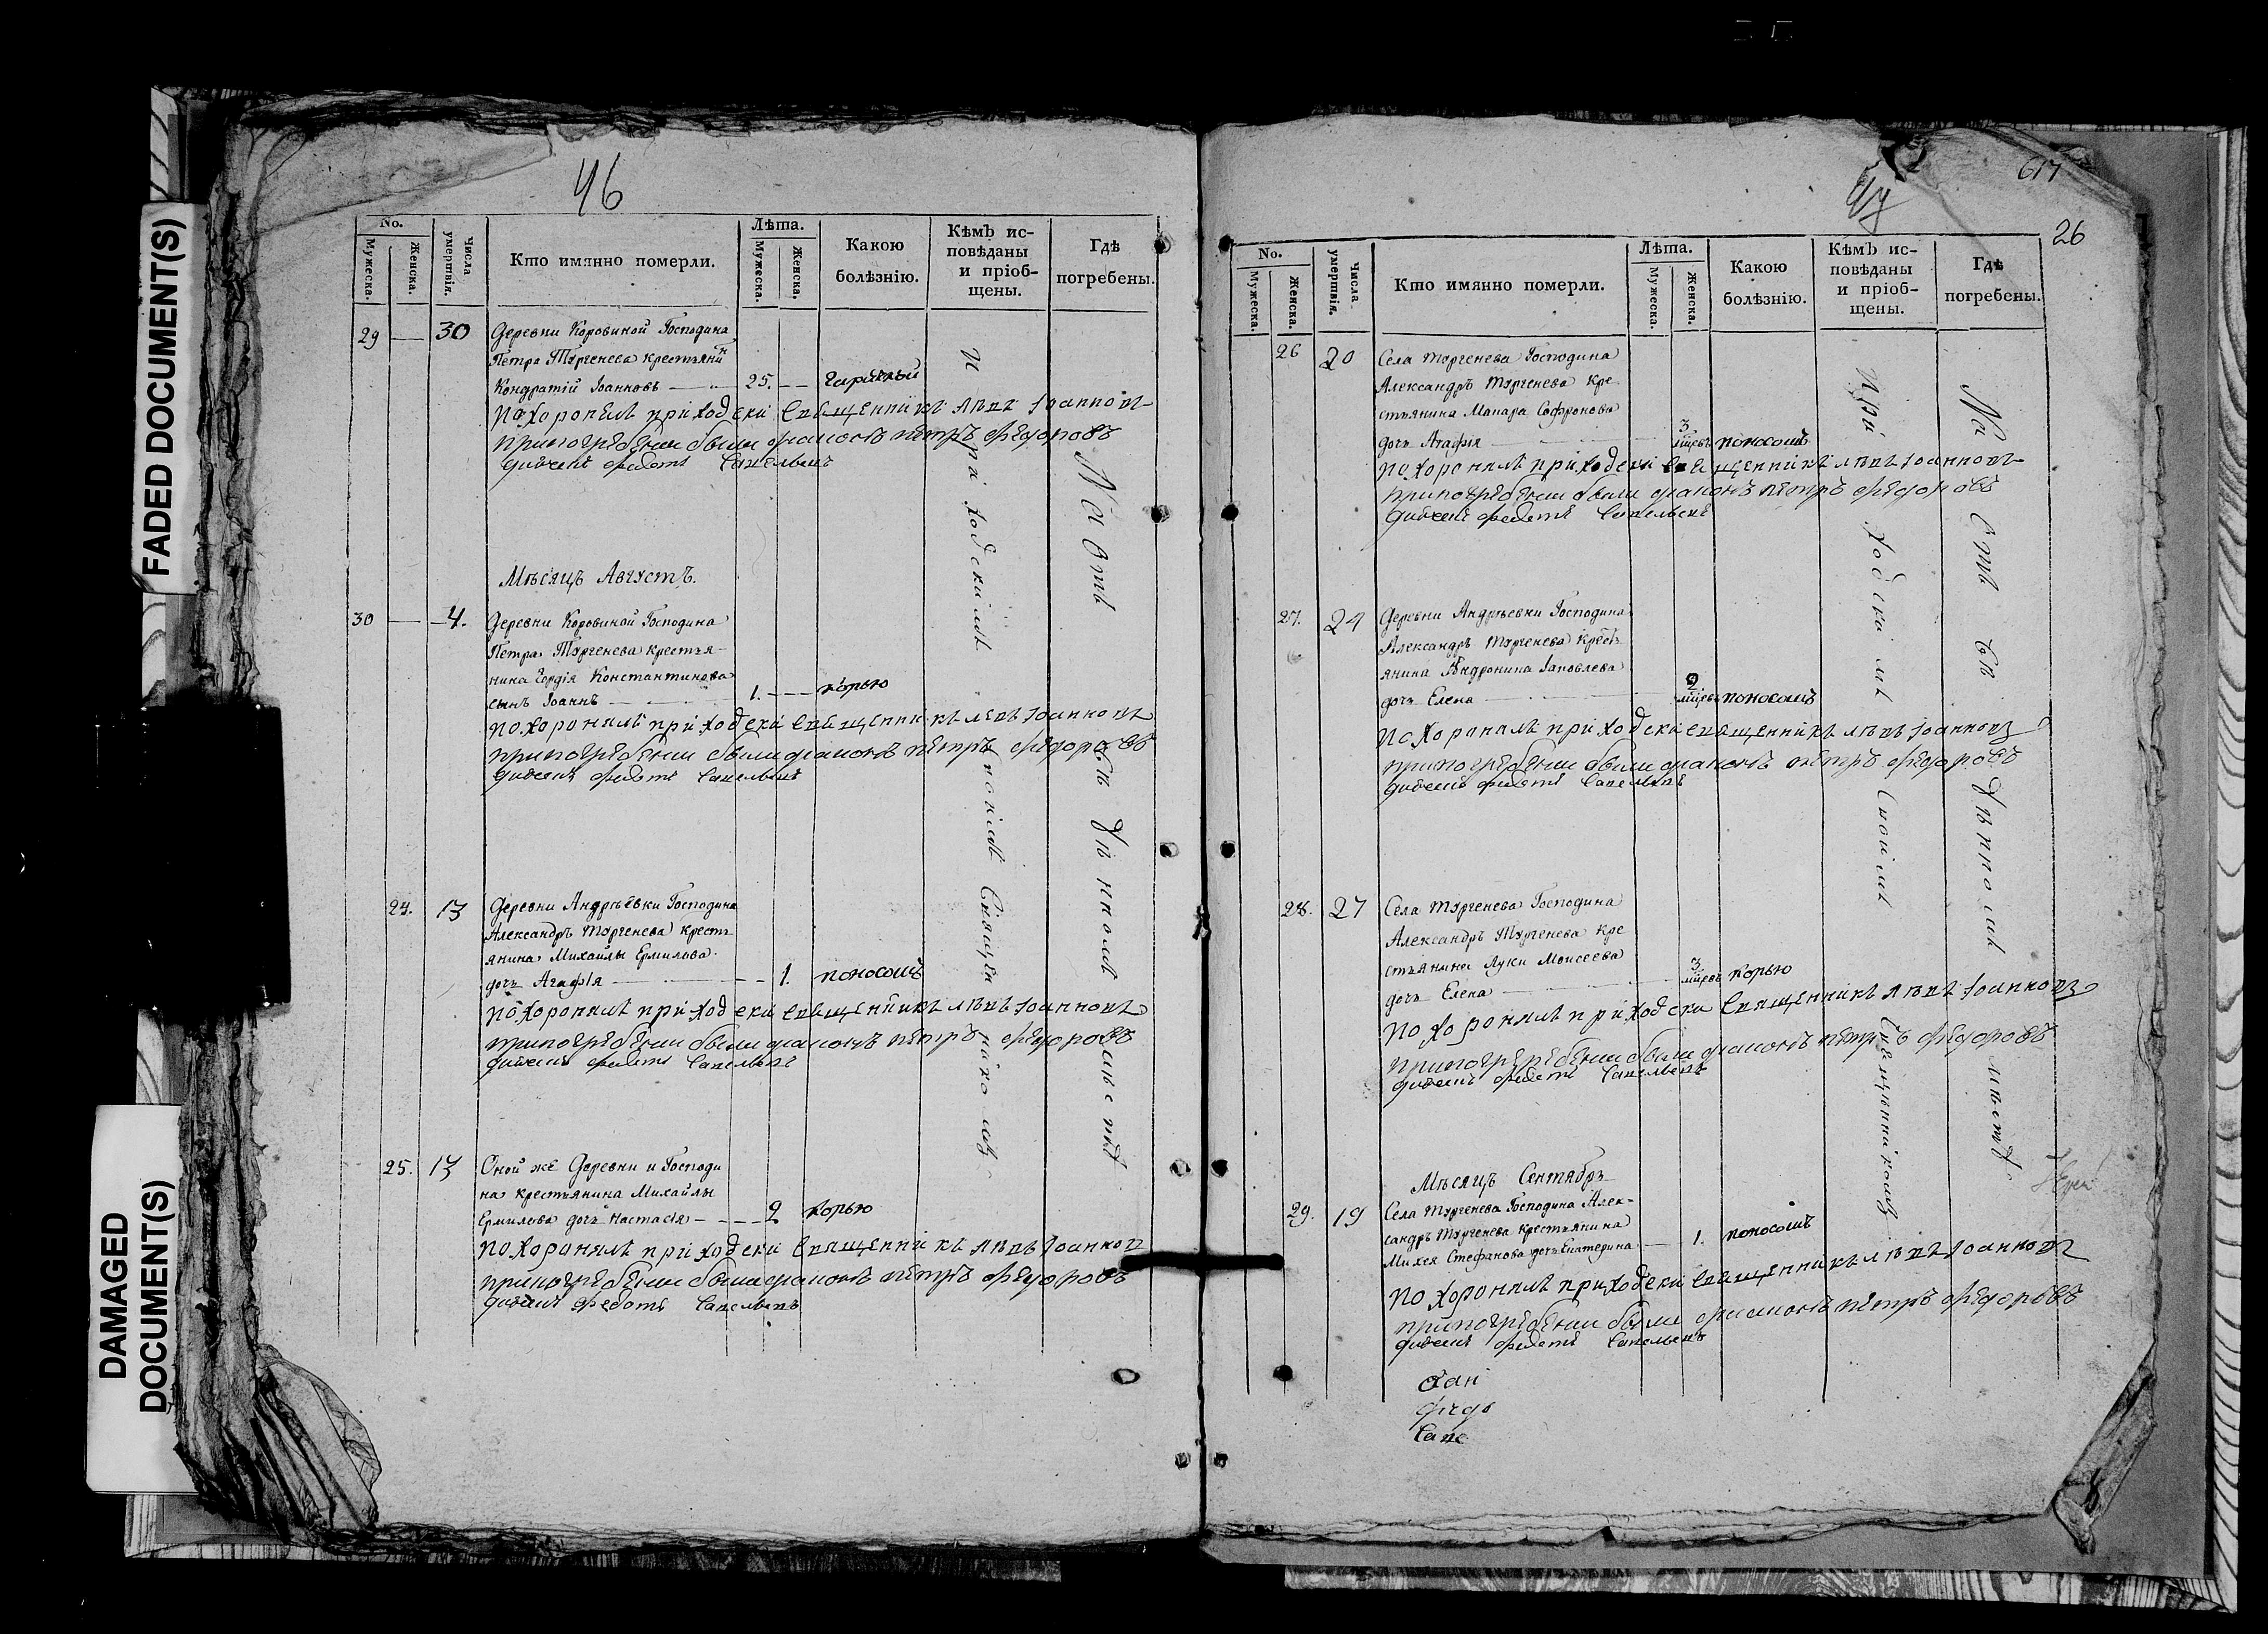 FADED DOCUMENT(S)
DAMAGED
DOCUMENT(S)
46
No.
Мужеска.
Женска.
Числа
умертвія.
Кто имянно померли.
Лѣта.
Мужеска.
Женска.
Какою
болѣзнію.
Кѣмъ ис-
повѣданы
и пріоб-
щены.
Гдѣ
погребены.
29 30 Деревни Коровиной Господина
Петра Тургенева крестьянинъ
Кондратій Іоанновъ 25. горячкой
Похоронилъ приходски священникъ левъ Іоанновъ
припогребении были диаконъ петръ федоровъ
дьячекъ федотъ
Мѣсяцъ Августъ.
30 4. Деревни Коровиной Господина
Петра Тургенева крестья-
нина Гордія Константинова
сынъ Іоаннъ 1. корью
похоронилъ приходски священникъ левъ Іоанновъ
припогребении были диаконъ петръ федоровъ
дьячекъ федотъ
24. 13 Деревни Андрѣевки Господина
Александръ Тургенева кресть
янина Михайлы Ермилова
дочь Агафія 1. поносомъ
похоронилъ приходски священникъ левъ Іоанновъ
припогребении были диаконъ петръ федоровъ
дьячекъ федотъ
25. 13 Оной же Деревни и Господи
на крестьянина Михайлы
Ермилова дочь Настасія 2 корью
похоронилъ приходски священникъ левъ Іоанновъ
припогребении были диаконъ петръ федоровъ
дьячекъ федотъ
приходскимъ своимъ священникомъ
На отведенномъ мѣстѣ
47
617
26
No.
Мужеска.
Женска.
Числа
умертвія.
Кто имянно померли.
Лѣта.
Мужеска.
Женска.
Какою
болѣзнію.
Кѣмъ ис-
повѣданы
и пріоб-
щены.
Гдѣ
погребены.
26 20 Села Тургенева Господина
Александръ Тургенева кре
стьянина Макара Софронова
дочь Агафія 3 мцевъ поносомъ
похоронилъ приходски священникъ левъ Іоанновъ
припогребении были диаконъ петръ федоровъ
дьячекъ федотъ
27. 24 Деревни Андрѣевки Господина
Александръ Тургенева кресть
янина Андроника Іаковлева
дочь Елена 9 мцевъ поносомъ
похоронилъ приходски священникъ левъ Іоанновъ
припогребении были диаконъ петръ федоровъ
дьячекъ федотъ
28. 27 Села Тургенева Господина
Александръ Тургенева кре
стьянина Луки Моисеева
дочь Елена 3 мцевъ корью
похоронилъ приходски священникъ левъ Іоанновъ
припогребении были диаконъ петръ федоровъ
дьячекъ федотъ
Мѣсяцъ Сентябрь
29. 19 Села Тургенева Господина Алек-
сандръ Тургенева крестьянина
Михея Стефанова дочь Екатерина 1. поносомъ
похоронилъ приходски священникъ левъ Іоанновъ
припогребении были диаконъ петръ федоровъ
дьячекъ федотъ
Приходскимъ своимъ священникомъ
На отведенномъ мѣстѣ